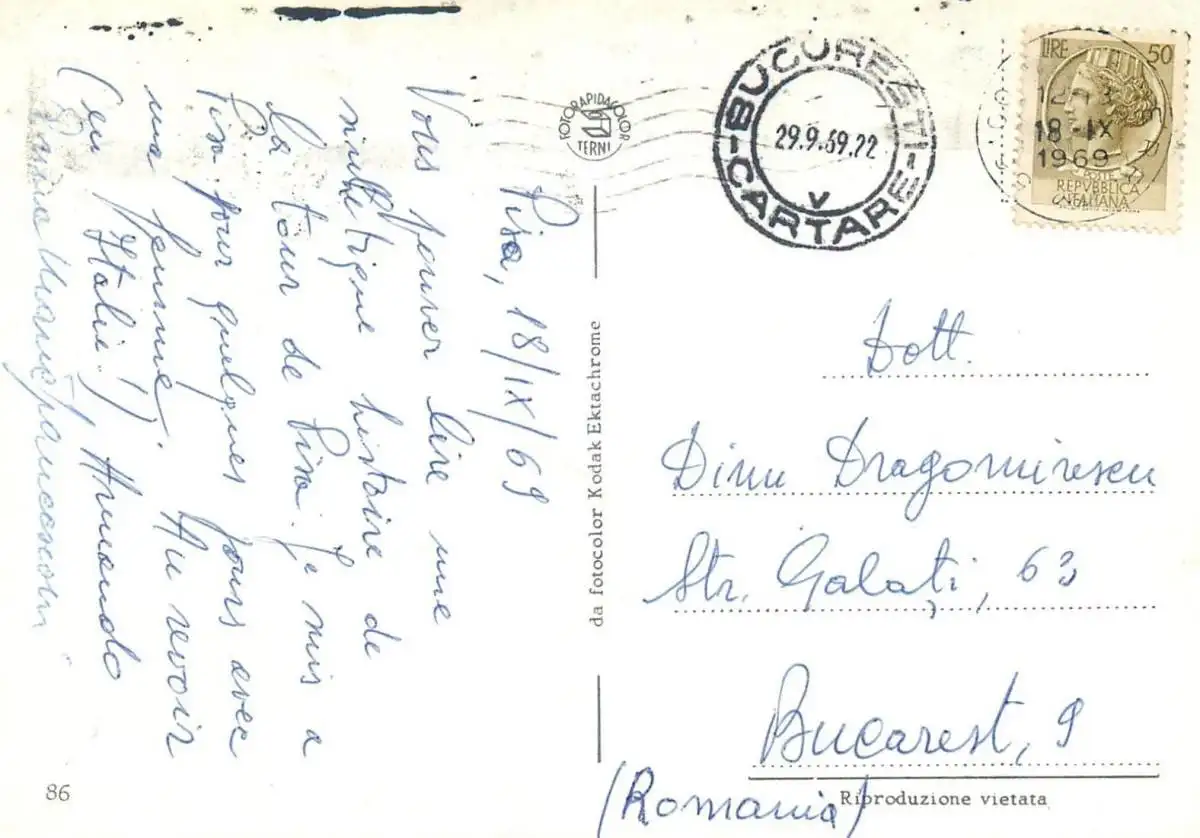 Pisa, 18/IX/69
Vous pouvez lire une
histoire de
La tour de Pisa. Je suis a
Pisa pour quelques jours avec
ma femme. Au revoir
(en Italie!) Armando
FOTORAPIDACOLOR
TERNI
da fotocolor Kodak Ektachrome
86
BUCUREȘTI
29.9.69.22
V
CARTARE
LIRE 50
18 - IX
1969
POSTE
REPVBBLICA
ITALIANA
Dott.
Dinu Dragomirescu
Str. Galați, 63
Bucarest, 9
(Romania)
Riproduzione vietata